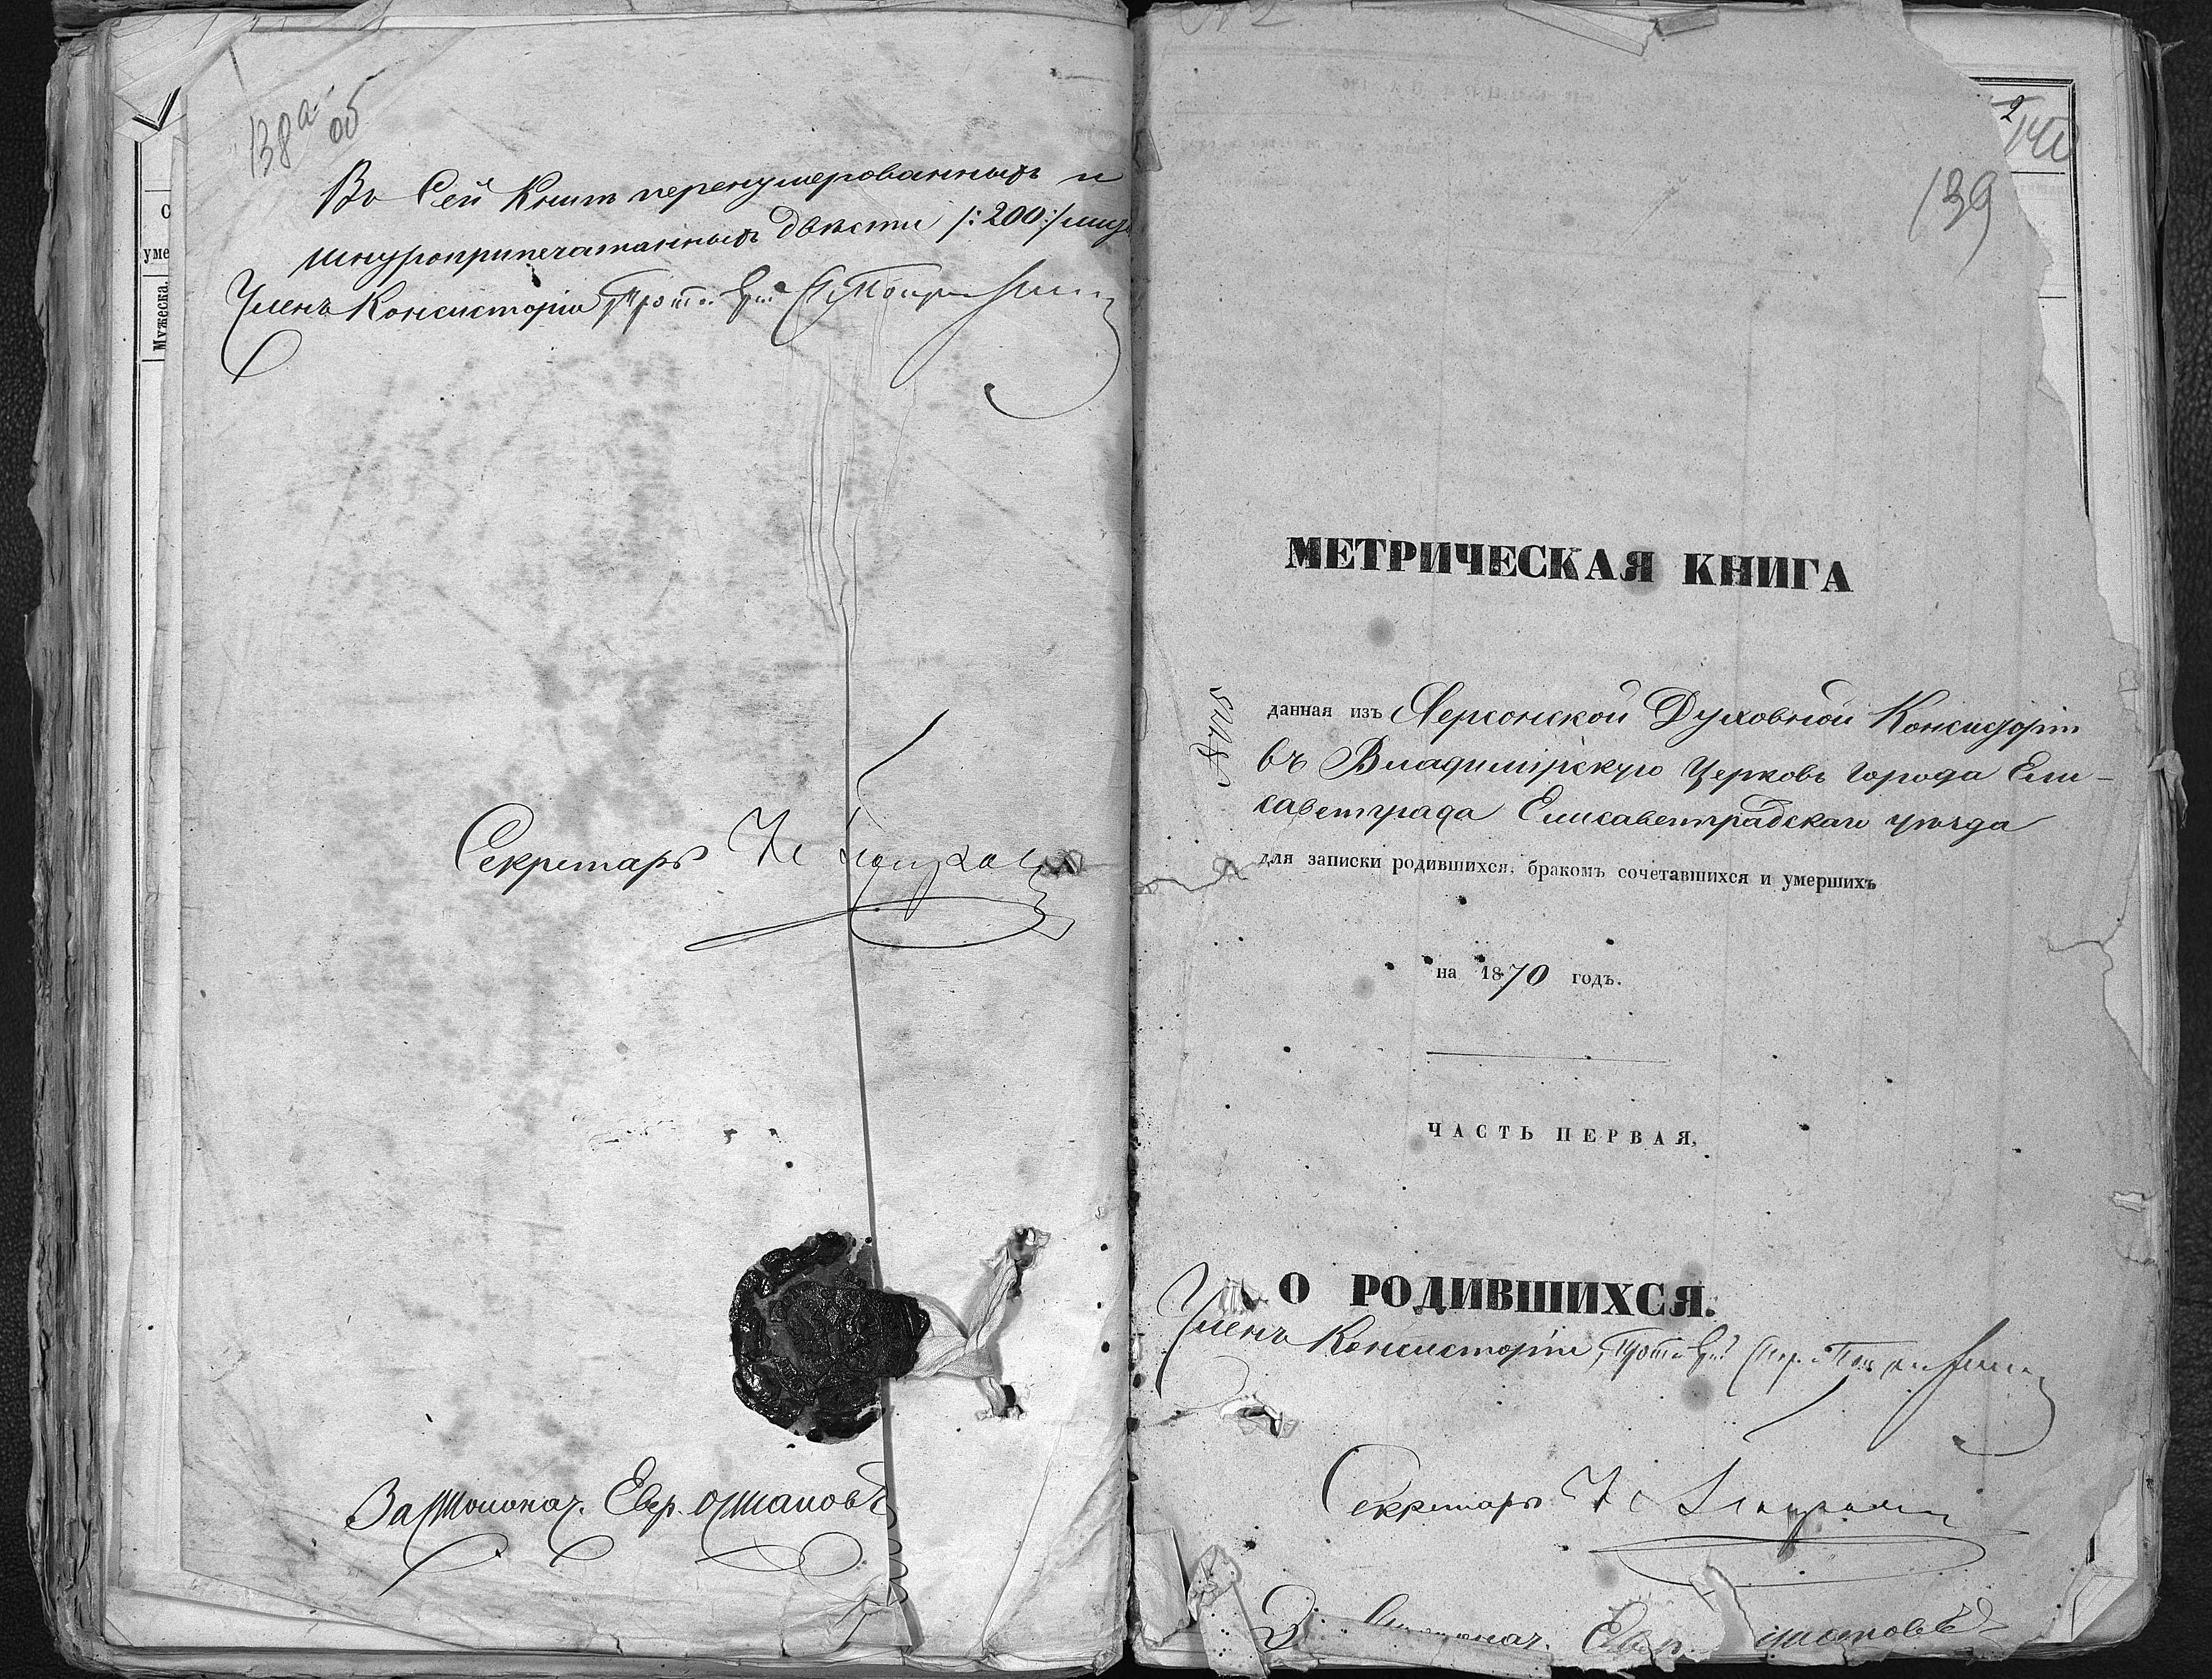 138а об
Въ Сей Книгѣ перенумерованныхъ и
шнуроприпечатанныхъ двѣсти /:200:/ лист
Членъ Консисторіи Протоіерей
Секретарь
За Столонач. Евр. Ошаповъ
С
уме
Мужеска.
№ 2
2
140
139
МЕТРИЧЕСКАЯ КНИГА
данная изъ Херсонской Духовной Консисторіи
въ Владимірскую Церковь города Ели-
саветграда Елисаветградскаго уѣзда
для записки родившихся, бракомъ сочетавшихся и умершихъ
на 1870 годъ.
ЧАСТЬ ПЕРВАЯ,
О РОДИВШИХСЯ.
Членъ Консисторіи, Протоіерей
Секретарь